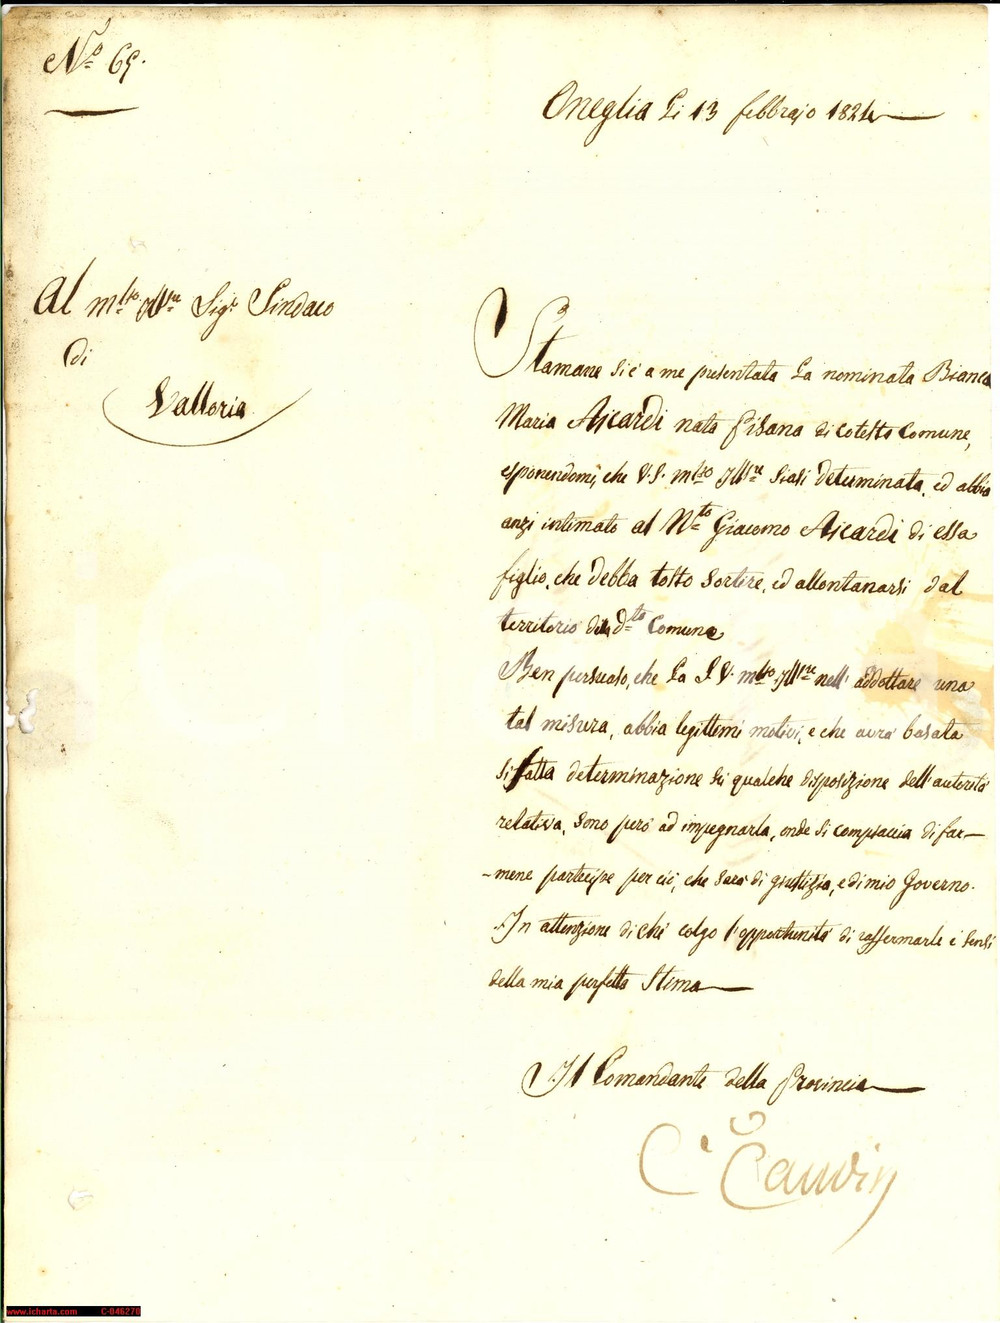 N.o 69.
Oneglia Li 13 febbrajo 1824
Al m.lto Ill.re Sig.r Sindaco
di
Valloria
Stamane si è a me presentata La nominata Bianca
Maria Aicardi nata Pisana di cotesto Comune,
esponendomi, che V.S. m.lto Ill.re siasi determinata, ed abbia
anzi intimato al N.to Giacomo Aicardi di essa
figlio, che debba tosto sortire, ed allontanarsi dal
territorio di d.to Comune
Ben persuaso, che La S.V. m.lto Ill.re nell' addottare una
tal misura, abbia legittemi motivi, e che avrà basata
sifatta determinazione su qualche disposizione dell'autorità
relativa, sono però ad impegnarla, onde si compiaccia di far-
-mene partecipe per ciò, che sarà di giustizia, e di mio Governo.
In attenzione di chè colgo l'opportunità di raffermarle i sensi
della mia perfetta Stima
Il Comandante della Provincia
www.icharta.com C-046270